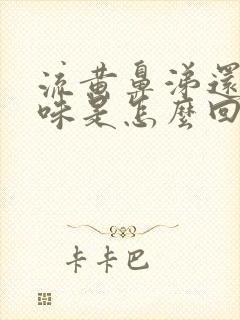 流黄鼻涕還
味是怎麼回
卡卡巴